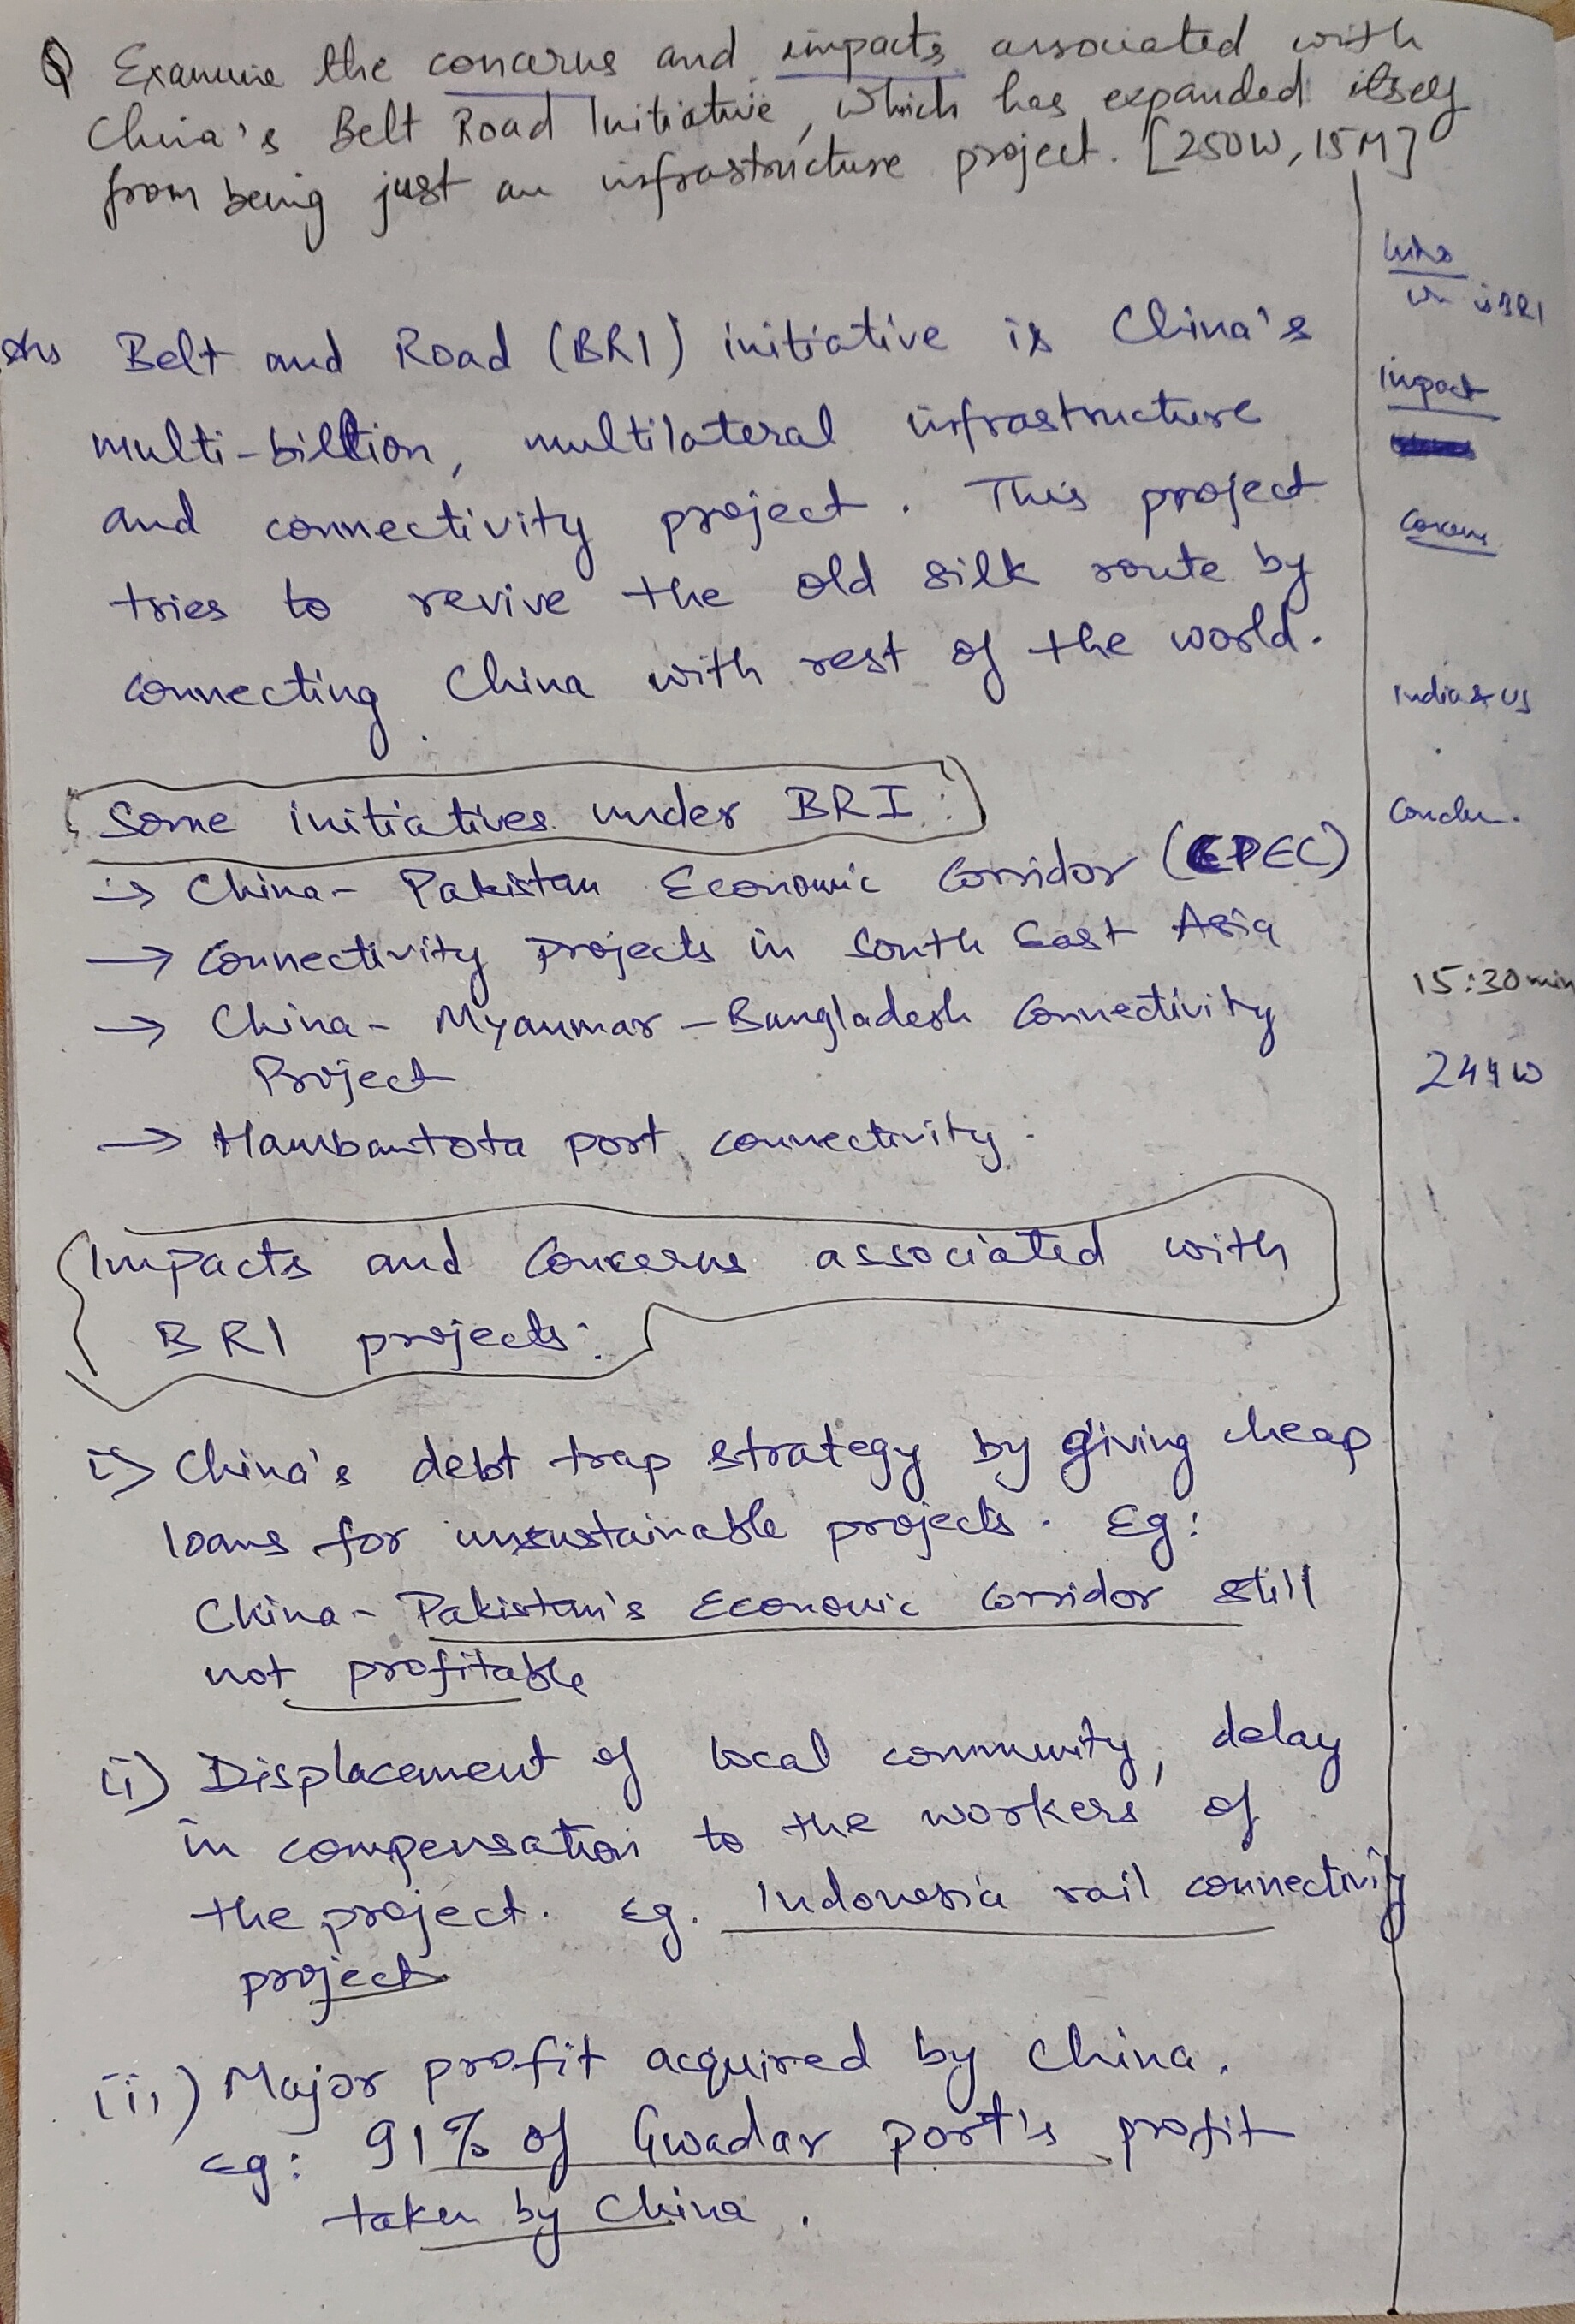 Q Examine the concerns and impacts associated with
China's Belt Road Initiative, which has expanded itself
from being just an infrastructure project. [250W, 15M]
Ans Belt and Road (BRI) initiative is China's
multi-billion, multilateral infrastructure
and connectivity project. This project
tries to revive the old silk route by
connecting China with rest of the world.
Some initiatives under BRI:
→ China - Pakistan Economic Corridor (CPEC)
→ Connectivity projects in South East Asia
→ China - Myanmar - Bangladesh Connectivity
Project
→ Hambantota port connectivity.
Impacts and Concerns associated with
BRI projects:
i) China's debt trap strategy by giving cheap
loans for unsustainable projects. Eg:
China - Pakistan's Economic Corridor still
not profitable
ii) Displacement of local community, delay
in compensation to the workers of
the project. Eg. Indonesia rail connectivity
project
iii) Major profit acquired by China.
Eg: 91% of Gwadar port's profit
taken by China.
is BRI
Impact
Concern
India & US
Conclu.
15:30 min
244 W